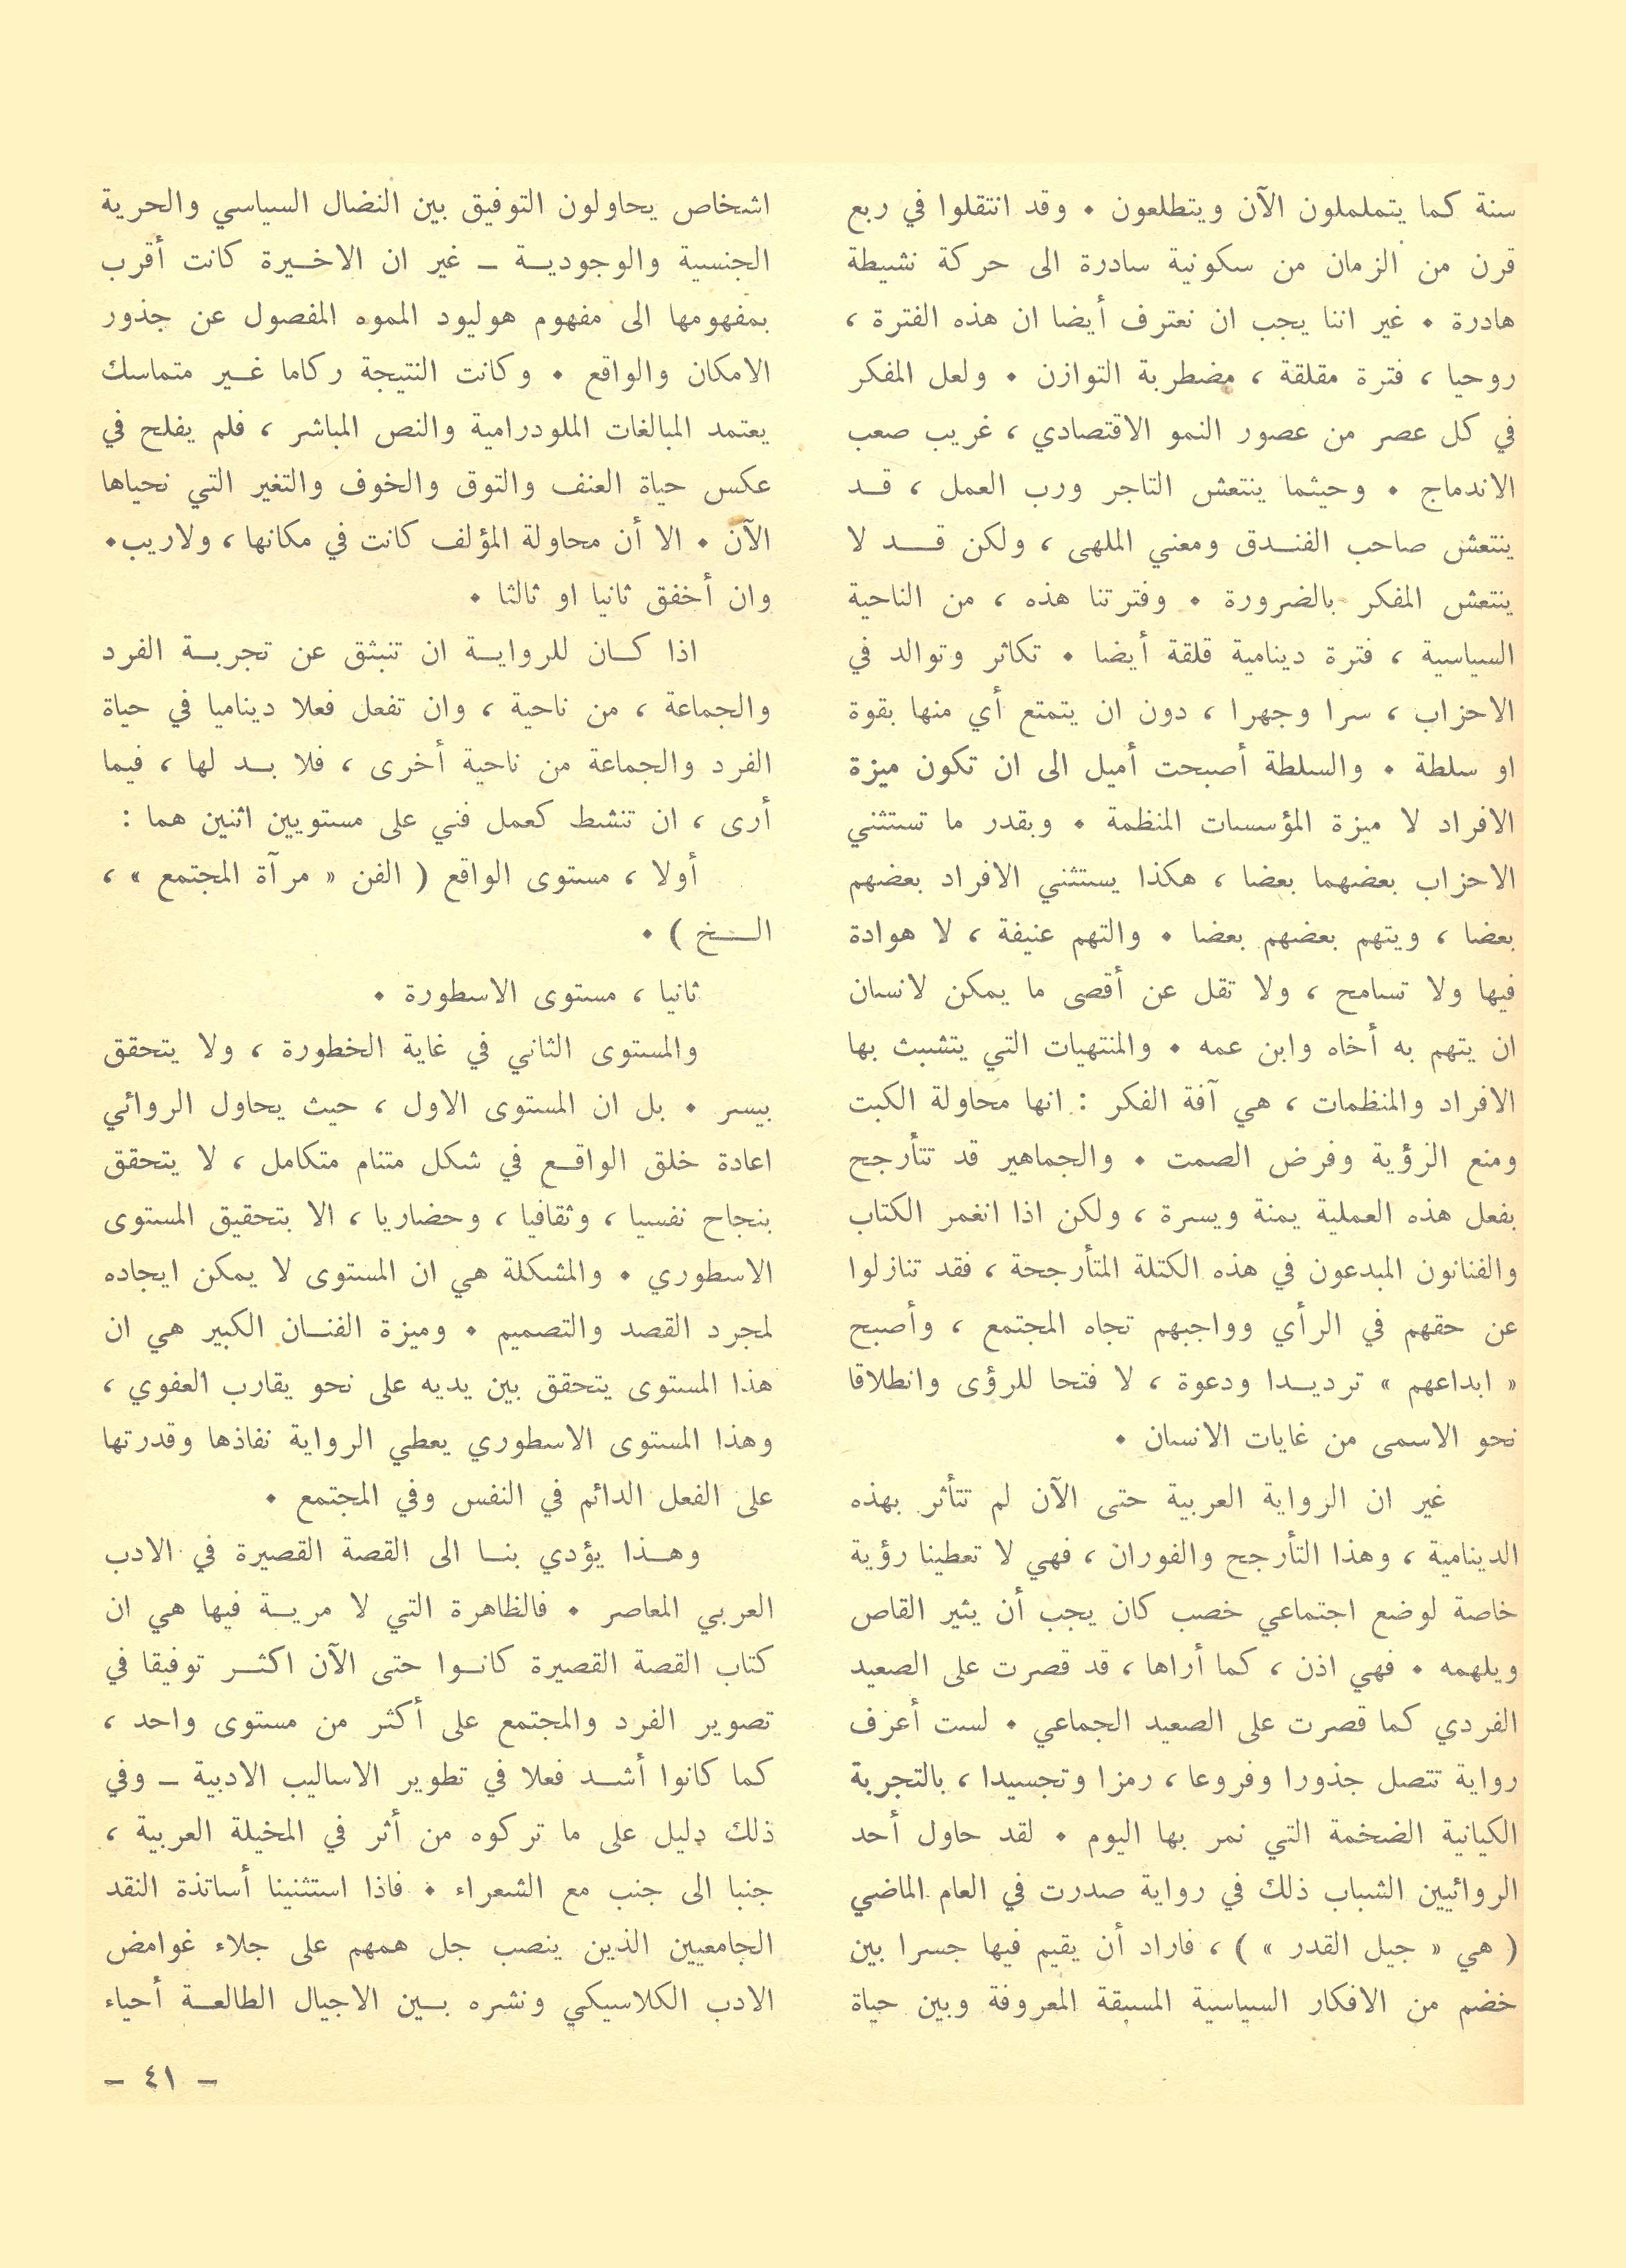 سنة كما يتململون الآن ويتطلعون ٠ وقد انتقلوا في ربع
قرن من الزمان من سكونية سادرة الى حركة نشيطة
هادرة ٠ غير اننا يجب ان نعترف أيضا ان هذه الفترة ،
روحيا ، فترة مقلقة ، مضطربة التوازن ٠ ولعل المفكر
في كل عصر من عصور النمو الاقتصادي ، غريب صعب
الاندماج ٠ وحيثما ينتعش التاجر ورب العمل ، قد
ينتعش صاحب الفندق ومغني الملهى ، ولكن قد لا
ينتعش المفكر بالضرورة ٠ وفترتنا هذه ، من الناحية
السياسية ، فترة دينامية قلقة أيضا ٠ تكاثر وتوالد في
الاحزاب ، سرا وجهرا ، دون ان يتمتع أي منها بقوة
او سلطة ٠ والسلطة أصبحت أميل الى ان تكون ميزة
الافراد لا ميزة المؤسسات المنظمة ٠ وبقدر ما تستثني
الاحزاب بعضهما بعضا ، هكذا يستثني الافراد بعضهم
بعضا ، ويتهم بعضهم بعضا ٠ والتهم عنيفة ، لا هوادة
فيها ولا تسامح ، ولا تقل عن أقصى ما يمكن لانسان
ان يتهم به أخاه وابن عمه ٠ والمنتهيات التي يتشبث بها
الافراد والمنظمات ، هي آفة الفكر : انها محاولة الكبت
ومنع الرؤية وفرض الصمت ٠ والجماهير قد تتأرجح
بفعل هذه العملية يمنة ويسرة ، ولكن اذا انغمر الكتاب
والفنانون المبدعون في هذه الكتلة المتأرجحة ، فقد تنازلوا
عن حقهم في الرأي وواجبهم تجاه المجتمع ، وأصبح
« ابداعهم » ترديدا ودعوة ، لا فتحا للرؤى وانطلاقا
نحو الاسمى من غايات الانسان ٠
غير ان الرواية العربية حتى الآن لم تتأثر بهذه
الدينامية ، وهذا التأرجح والفوران ، فهي لا تعطينا رؤية
خاصة لوضع اجتماعي خصب كان يجب أن يثير القاص
ويلهمه ٠ فهي اذن ، كما أراها ، قد قصرت على الصعيد
الفردي كما قصرت على الصعيد الجماعي ٠ لست أعرف
رواية تتصل جذورا وفروعا ، رمزا وتجسيدا ، بالتجربة
الكيانية الضخمة التي نمر بها اليوم ٠ لقد حاول أحد
الروائيين الشباب ذلك في رواية صدرت في العام الماضي
( هي « جيل القدر » ) ، فاراد أن يقيم فيها جسرا بين
خضم من الافكار السياسية المسبقة المعروفة وبين حياة
اشخاص يحاولون التوفيق بين النضال السياسي والحرية
الجنسية والوجودية – غير ان الاخيرة كانت أقرب
بمفهومها الى مفهوم هوليود المموه المفصول عن جذور
الامكان والواقع ٠ وكانت النتيجة ركاما غير متماسك
يعتمد المبالغات الملودرامية والنص المباشر ، فلم يفلح في
عكس حياة العنف والتوق والخوف والتغير التي نحياها
الآن ٠ الا أن محاولة المؤلف كانت في مكانها ، ولاريب٠
وان أخفق ثانيا او ثالثا ٠
اذا كان للرواية ان تنبثق عن تجربة الفرد
والجماعة ، من ناحية ، وان تفعل فعلا ديناميا في حياة
الفرد والجماعة من ناحية أخرى ، فلا بد لها ، فيما
أرى ، ان تنشط كعمل فني على مستويين اثنين هما :
أولا ، مستوى الواقع ( الفن « مرآة المجتمع » ،
الخ ) ٠
ثانيا ، مستوى الاسطورة ٠
والمستوى الثاني في غاية الخطورة ، ولا يتحقق
بيسر ٠ بل ان المستوى الاول ، حيث يحاول الروائي
اعادة خلق الواقع في شكل متنام متكامل ، لا يتحقق
بنجاح نفسيا ، وثقافيا ، وحضاريا ، الا بتحقيق المستوى
الاسطوري ٠ والمشكلة هي ان المستوى لا يمكن ايجاده
لمجرد القصد والتصميم ٠ وميزة الفنان الكبير هي ان
هذا المستوى يتحقق بين يديه على نحو يقارب العفوي ،
وهذا المستوى الاسطوري يعطي الرواية نفاذها وقدرتها
على الفعل الدائم في النفس وفي المجتمع ٠
وهذا يؤدي بنا الى القصة القصيرة في الادب
العربي المعاصر ٠ فالظاهرة التي لا مرية فيها هي ان
كتاب القصة القصيرة كانوا حتى الآن اكثر توفيقا في
تصوير الفرد والمجتمع على أكثر من مستوى واحد ،
كما كانوا أشد فعلا في تطوير الاساليب الادبية – وفي
ذلك دليل على ما تركوه من أثر في المخيلة العربية ،
جنبا الى جنب مع الشعراء ٠ فاذا استثنينا أساتذة النقد
الجامعيين الذين ينصب جل همهم على جلاء غوامض
الادب الكلاسيكي ونشره بين الاجيال الطالعة أحياء
– ٤١ –